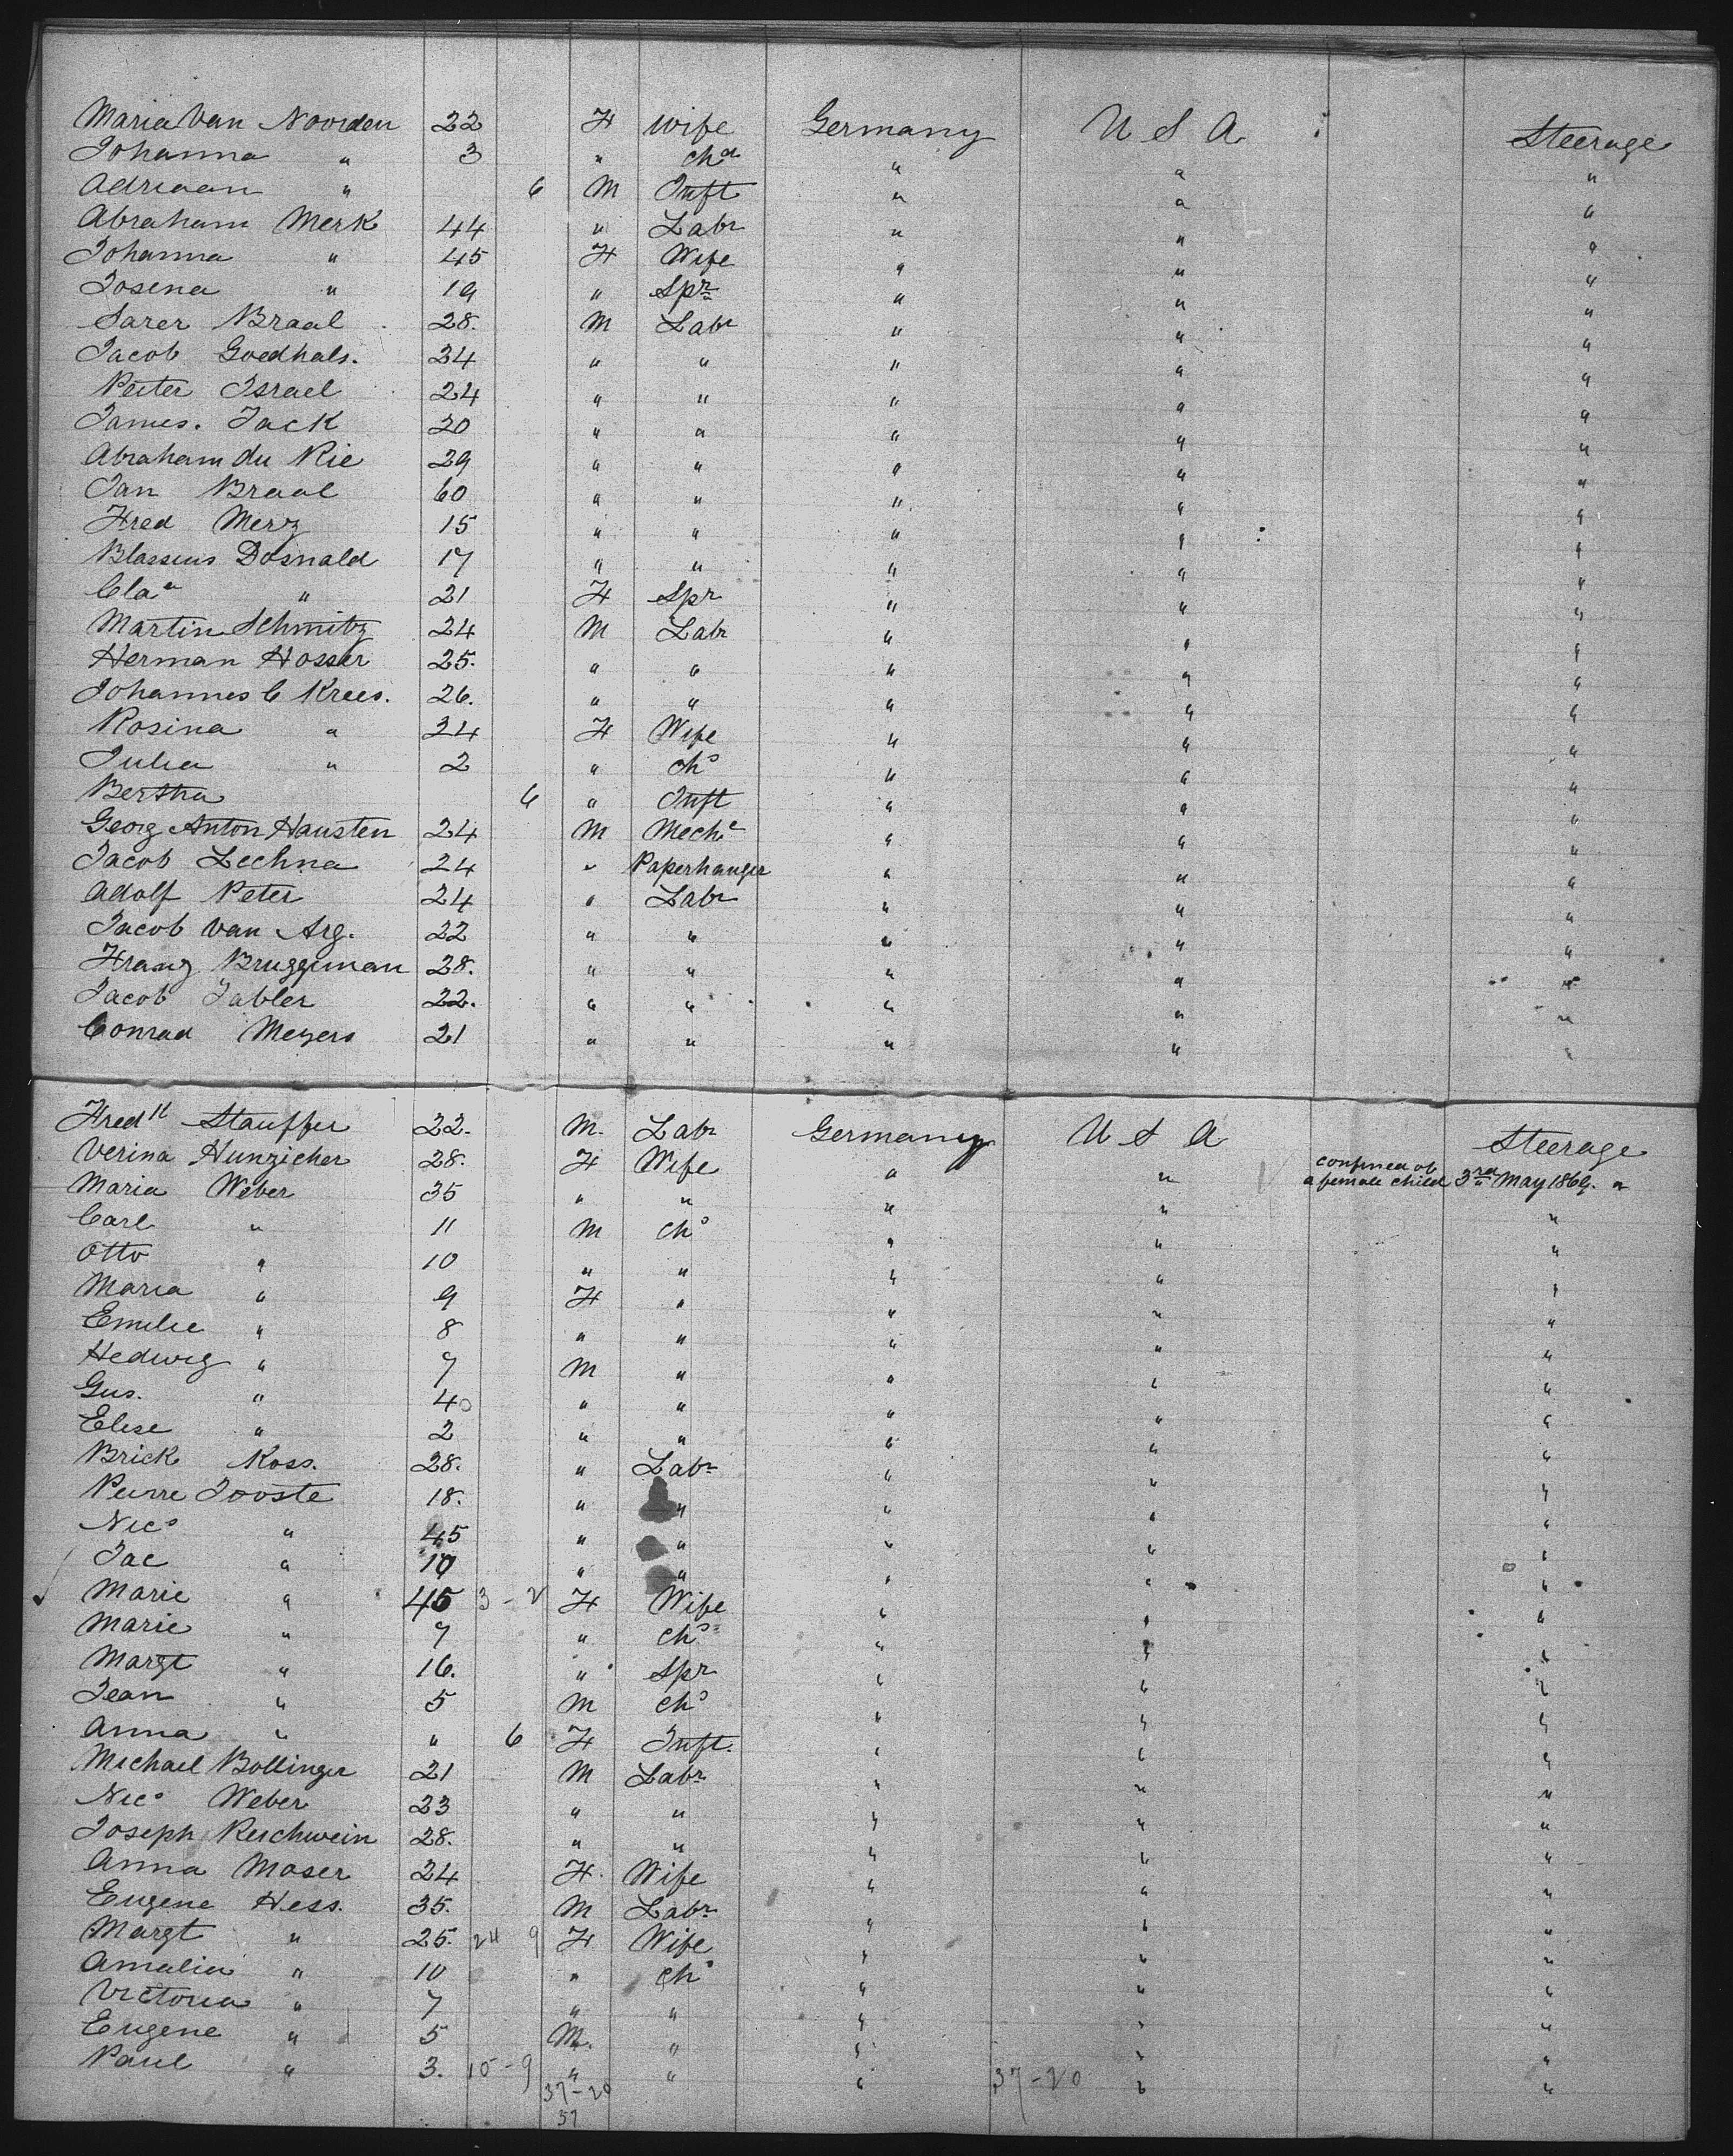 Maria Van Noorden 22 F wife Germany U S A Steerage
Johanna " 3 " chd " " "
Adriaan " 6 M Inft " " "
Abraham Merk 44 " Labr " " "
Johanna " 45 F Wife " " "
Josena " 19 " Spr " " "
Sarer Braal 28. M Labr " " "
Jacob Goedhals. 34 " " " " "
Peiter Israel 24 " " " " "
James. Jack 20 " " " " "
Abraham du Rie 29 " " " " "
Jan Braal 60 " " " " "
Fred Merz 15 " " " " "
Blassius Dosnald 17 " " " " "
Cla " 21 F Spr " " "
Martin Schmitz 24 M Labr " " "
Herman Hosser 25. " " " " "
Johannes C Krees. 26. " " " " "
Rosina " 24 F Wife " " "
Julia " 2 " chd " " "
Bertha 6 " Inft " " "
Georg Anton Hausten 24 M Mechc " " "
Jacob Lechna 24 " Paperhanger " " "
Adolf Peter 24 " Labr " " "
Jacob Van Arg. 22 " " " " "
Franz Bruggiman 28. " " " " "
Jacob Tabler 22. " " " " "
Conrad Meyers 21 " " " " "
Fredk Stauffer 22. M. Labr Germany U S A Steerage
Verina Hunzicher 28. F Wife " " confined of a female child 3rd May 1869. "
Maria Weber 35 " " " " "
Carl " 11 M chd " " "
Otto " 10 " " " " "
Maria " 9 F " " " "
Emilie " 8 " " " " "
Hedwig " 7 M " " " "
Gus. " 4 " " " " "
Elise " 2 " " " " "
Brick Koss. 28. " Labr " " "
Pierre Jooste 18. " " " " "
Nics " 45 " " " " "
Jac " 19 " " " " "
Marie " 45 3 - 2 F Wife " " "
Marie " 7 " chd " " "
Margt " 16. " Spr " " "
Jean " 5 M chd " " "
Anna " " 6 F Inft. " " "
Michael Bollinger 21 M Labr " " "
Nics Weber 23 " " " " "
Joseph Reichwein 28. " " " " "
Anna Moser 24 F. Wife " " "
Eugene Hess. 35. M Labr " " "
Margt " 25. 24 9 F Wife " " "
Amalia " 10 " chd " " "
Victoria " 7 " " " " "
Eugene " 5 M. " " " "
Paul " 3. 15 - 9 " " " " "
37 - 20 37 - 20
57